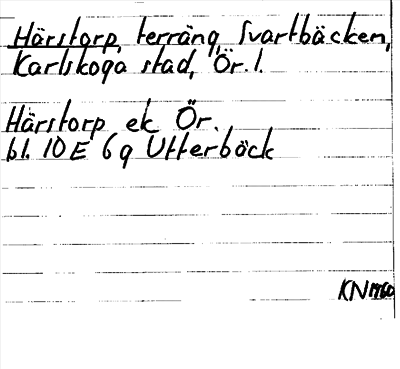 Härstorp, terräng, Svartbäcken,
Karlskoga stad, Ör. l.
Härstorp ek Ör.
bl. 10 E 6 g Utterbäck